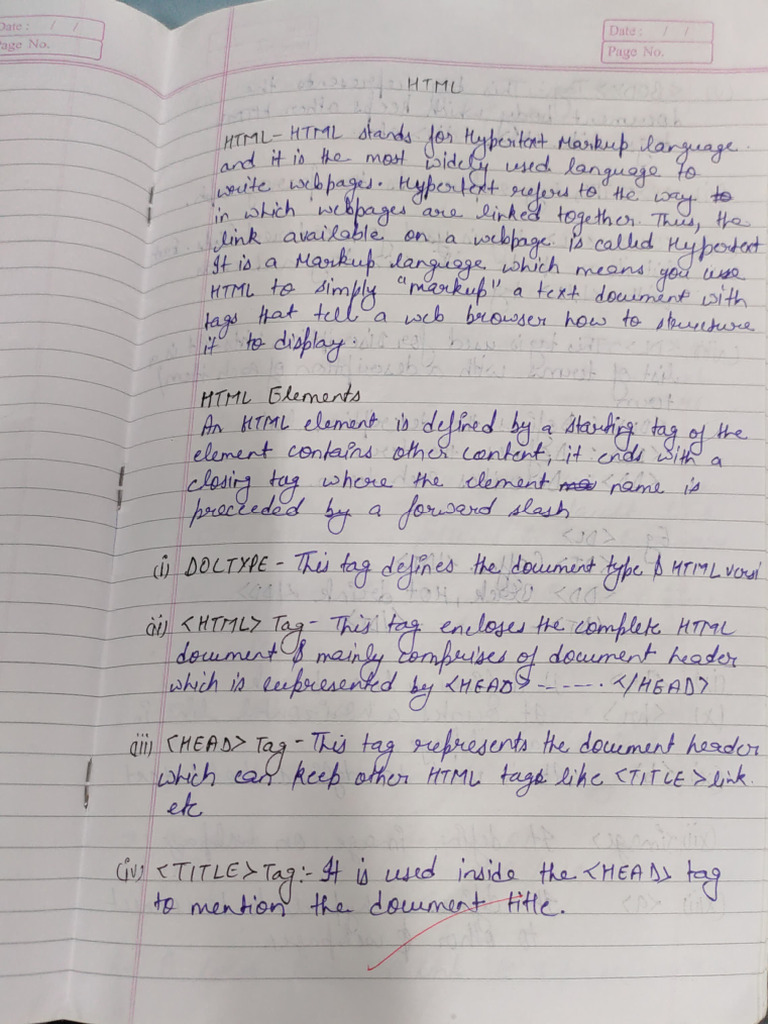 Date : / /
Page No.
Date : / /
Page No.
HTML
HTML - HTML stands for Hypertext Markup language.
and it is the most widely used language to
write webpages. Hypertext refers to the way to
in which webpages are linked together. Thus, the
link available on a webpage is called Hypertext
It is a Markup language which means you use
HTML to simply "markup" a text document with
tags that tell a web browser how to structure
it to display.
HTML Elements
An HTML element is defined by a starting tag of the
element contains other content, it ends with a
closing tag where the element name is
preceeded by a forward slash
(i) DOCTYPE - This tag defines the document type & HTML versi
(ii) <HTML> Tag - This tag encloses the complete HTML
document & mainly comprises of document header
which is represented by <HEAD> ------. </HEAD>
(iii) <HEAD> Tag - This tag represents the document header
which can keep other HTML tags like <TITLE> link.
etc
(iv) <TITLE> Tag:- It is used inside the <HEAD> tag
to mention the document title.